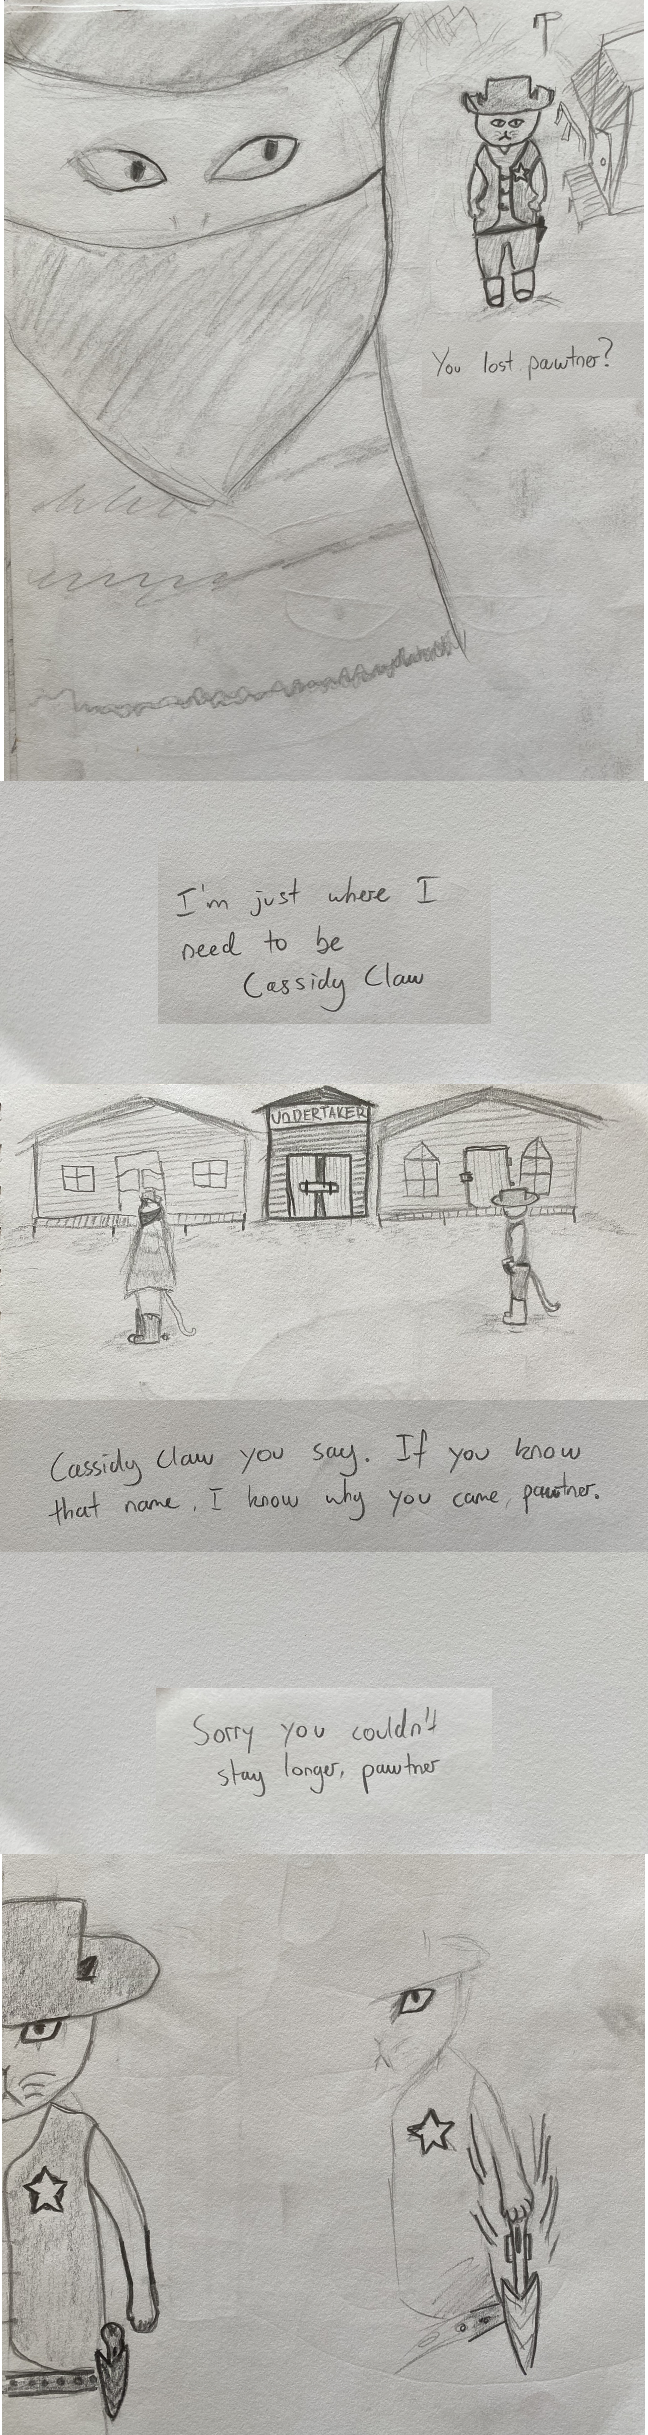 You lost pawtner?
I'm just where I
need to be
Cassidy Claw
UNDERTAKER
Cassidy Claw you say. If you know
that name, I know why you came, pawtner.
Sorry you couldn't
stay longer, pawtner